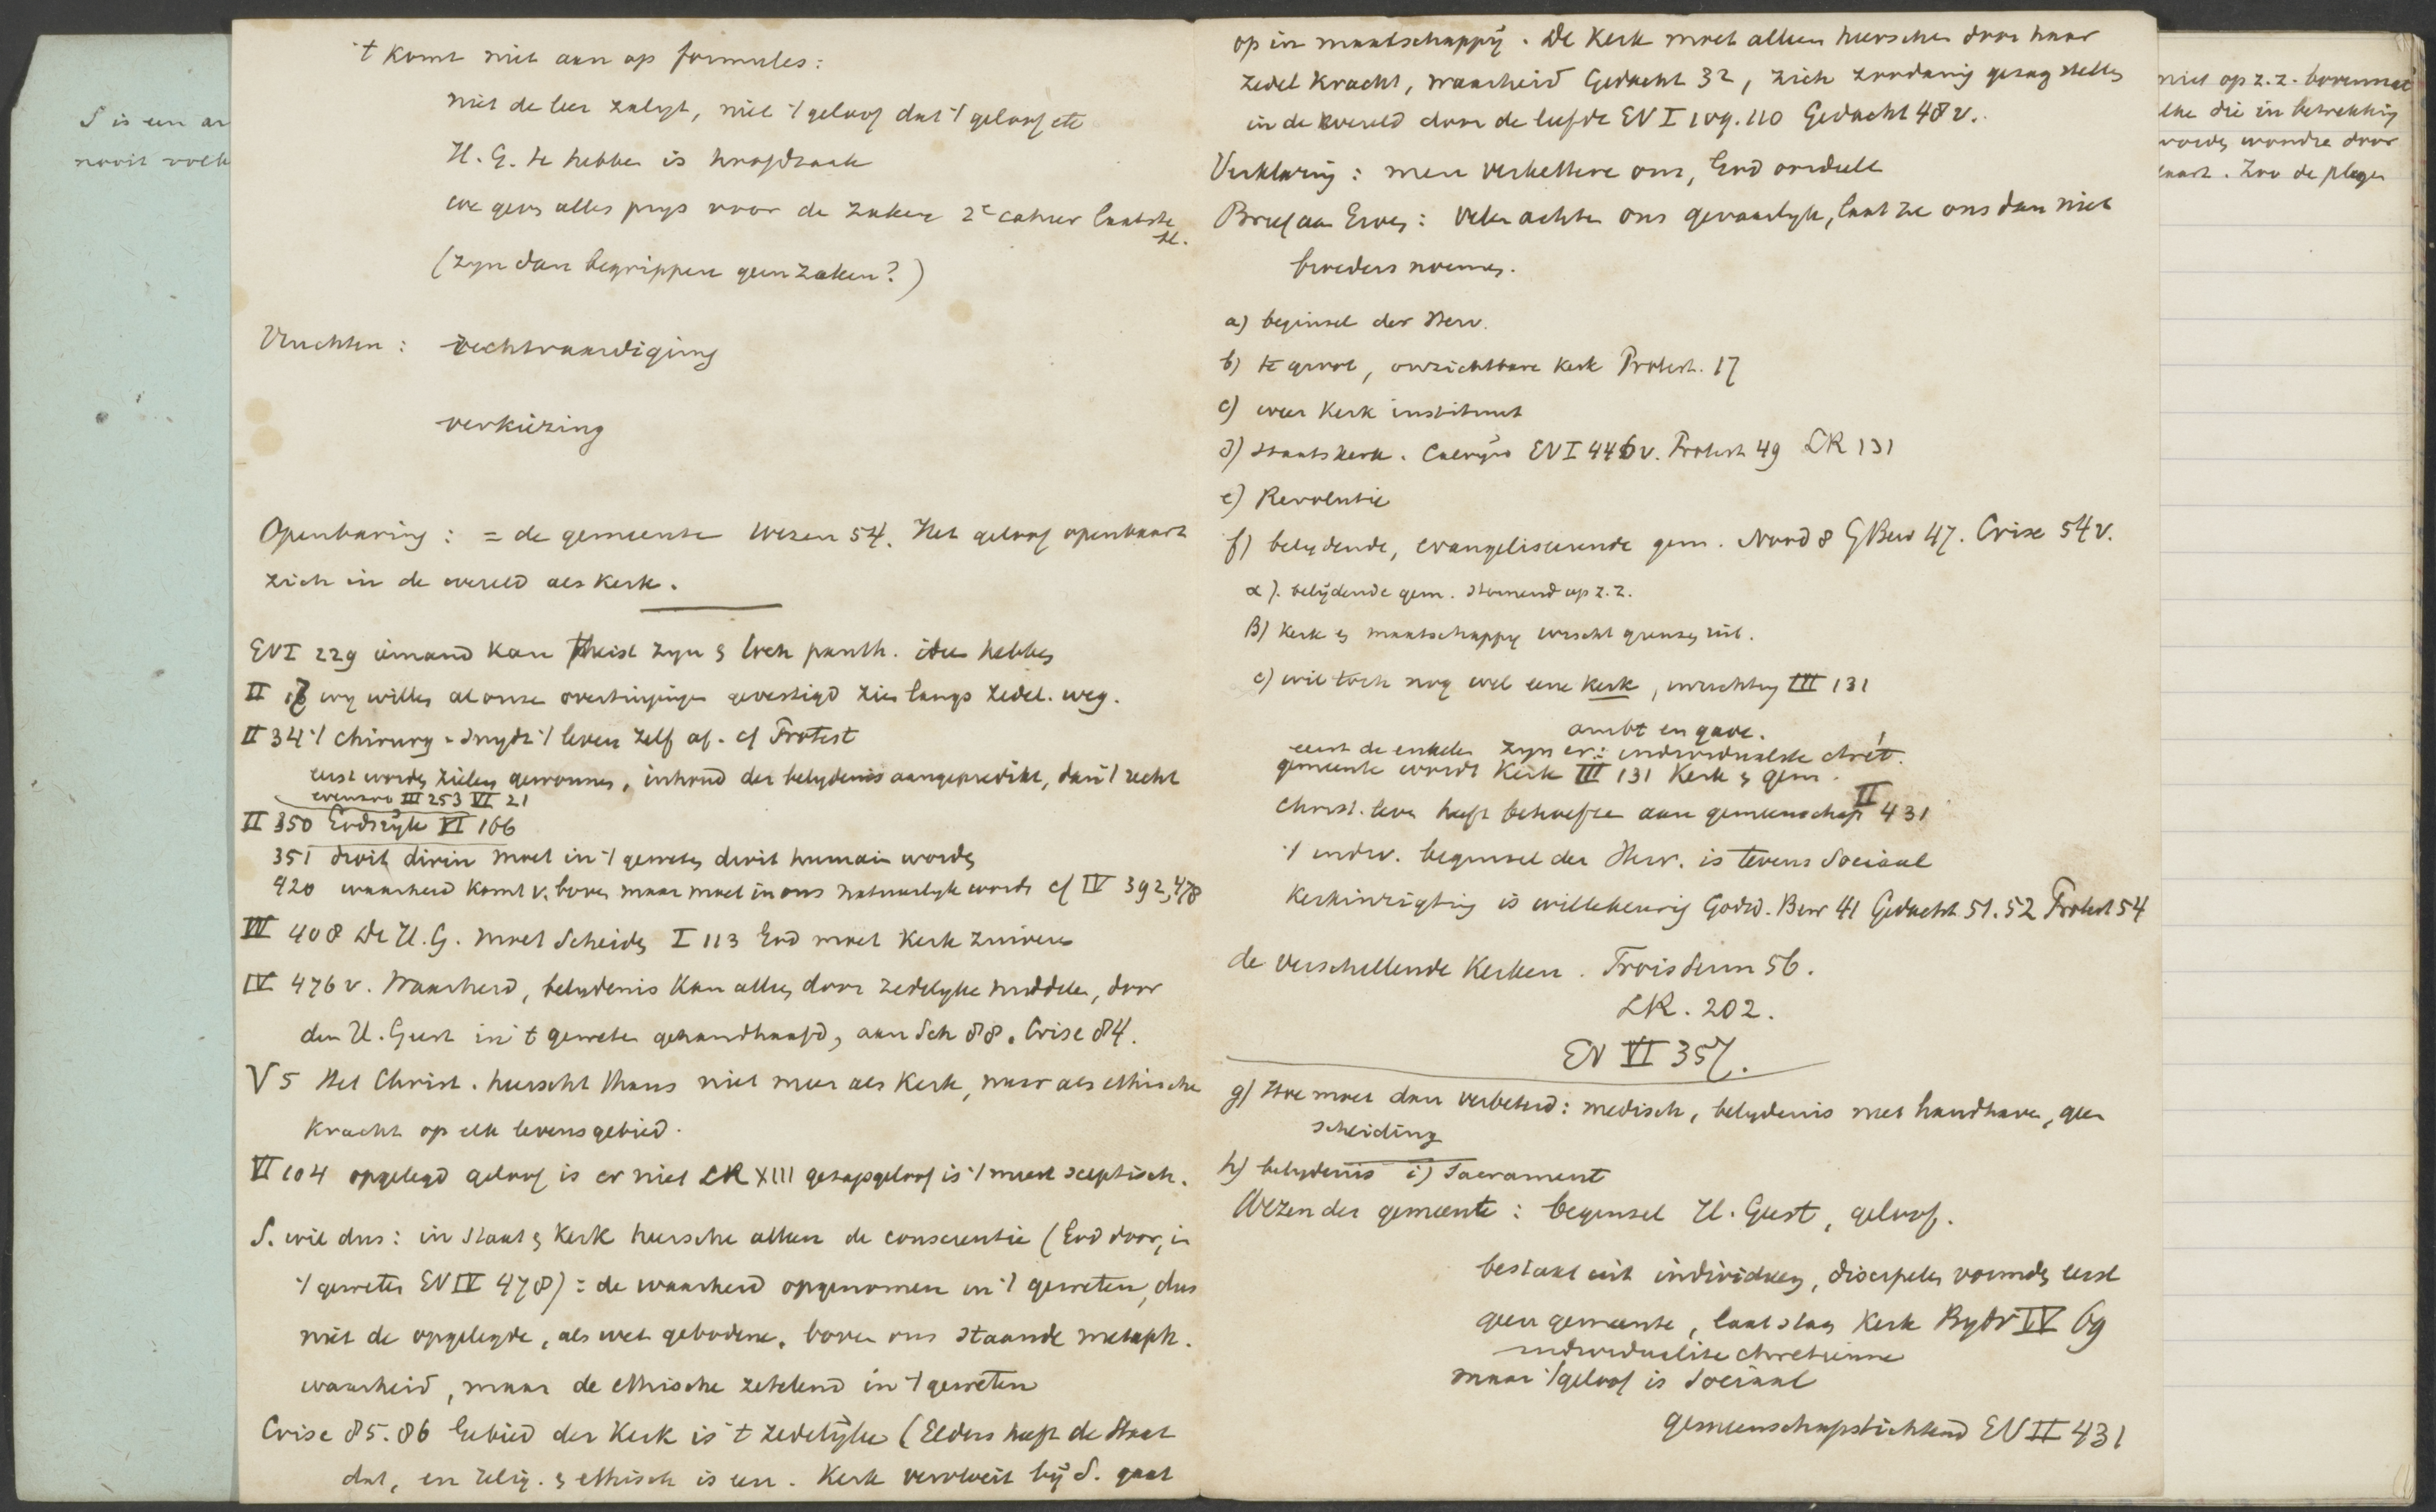 S is een
nooit
't komt niet aan op formules:
niet de leer zaligt, niet 't geloof dat 't geloof etc
H. G. te hebben is hoofdzaak
we geven alles prijs voor de zaken 2e cahier laatste
bl.
(zyn dan begrippen geen zaken?)
Vruchten: rechtvaardiging
verkiezing
Openbaring: = de gemeente Wezen 54. Het geloof openbaart
zich in de wereld als Kerk.
EV I 229 iemand kan theist zyn & toch panth. idee hebben
II 17 wy willen al onze overtuigingen gevestigd zien langs zedel. weg.
II 34 't chirurg - snydt 't leven zelf af. cf Protest
eerst worden zielen gewonnen, inhoud der belydenis aangepredikt, dan 't recht
evenzoo III 253 VI 21
II 350 Godsryk VI 166
351 droit divin moet in 't geweten droit humain worden
420 waarheid komt v. boven maar moet in ons natuurlyk worden cf IV 392, 478
III 408 De H. G. moet scheiden I 113 God moet Kerk zuiveren
IV 476 v. Waarheid, belydenis kan alleen door zedelyke middelen, door
den H. Geest in 't geweten gehandhaafd, aan Sch 88. Crise 84.
V 5 Het Christ. heerscht thans niet meer als Kerk, maar als ethische
kracht op elk levensgebied.
VI 104 opgelegd geloof is er niet LR XIII gezagsgeloof is 't meest sceptisch.
S. wil dus: in Staat & Kerk heersche alleen de conscientie (God door, in
't geweten EV IV 478) = de waarheid opgenomen in 't geweten, dus
niet de opgelegde, als wet gebodene, boven ons staande metaph.
waarheid, maar de ethische zetelend in 't geweten
Crise 85.86 Gebied der Kerk is 't zedelijke (Elders heeft de Staat
dat, en relig. & ethisch is een. Kerk vervloeit bij S. gaat
op in maatschappij. De Kerk moet alleen heerschen door haar
zedel kracht, waarheid Gedacht 32, zich zoodanig gezag stellen
in de wereld door de liefde EV I 109.110 Gedacht 48 v.
Verklaring: men verkettere ons, God oordeelt
Brief aan Groen: Velen achten ons gevaarlyk, laat ze ons dan niet
broeders noemen.
a) beginsel der Herv.
b) te groot, onzichtbare Kerk Protest. 17
c) weer Kerk instituut
d) staatskerk. Calvyn EV I 446 v. Protest 49 LR 131
e) Revolutie
f) belydende, evangeliseerende gem. Nood 8 GBew 47. Crise 54 v.
α). belijdende gem. steunend op z.z.
β) Kerk & maatschappij wischt grenzen uit.
c) wil toch nog wel eene Kerk, inrichting III 131
ambt en gave.
eerst de enkelen zyn er: individualité chrét.
gemeente wordt Kerk III 131 Kerk & gem.
Christ. leven heeft behoefte aan gemeenschap II 431
't indiv. beginsel der Herv. is tevens Sociaal
Kerkinrigting is willekeurig Godsd. Bew 41 Gedacht 51.52 Protest 54
de verschillende Kerken. Trois Serm 56.
LR. 202.
EV VI 357.
g) Hoe moet dan verbeterd: medisch, belydenis niet handhaven, geen
scheiding
h) belydenis i) Sacrament
Wezen der gemeente: beginsel H. Geest, geloof.
bestaat uit individuen, discipelen vormden eerst
geen gemeente, laat staan Kerk Bydr IV 69
individualité chretienne
maar 't geloof is Sociaal
gemeenschapstichtend EV II 431
niet op z.z.
die in betrekking
worden door
Zoo de plegen